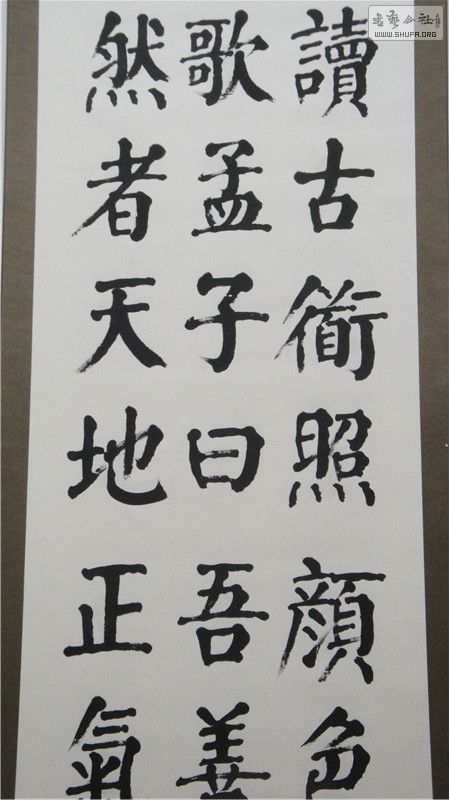 讀古衜照顔色
歌孟子曰吾善
然者天地正氣
書藝公社
WWW.SHUFA.ORG